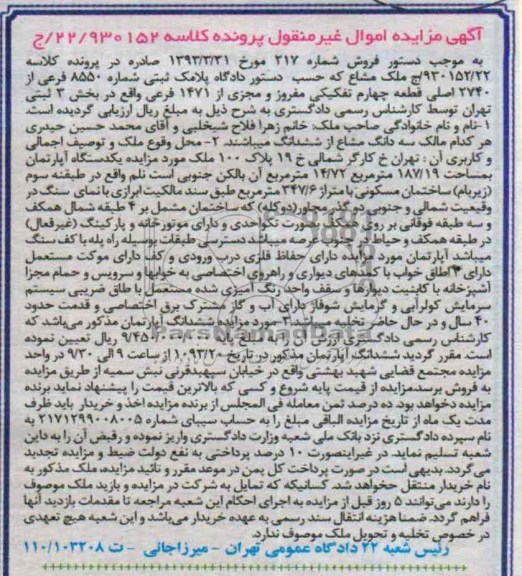 آگهی مزایده اموال غیرمنقول پرونده کلاسه ۲۲/۹۳۰۱۵۲/ج
به موجب دستور فروش شماره ۲۱۷ مورخ ۱۳۹۳/۳/۳۱ صادره در پرونده کلاسه
۹۳۰۱۵۲/۲۲/ج ملک مشاع که حسب دستور دادگاه پلاک ثبتی شماره ۸۵۵۰ فرعی از
۲۷۴۰ اصلی قطعه چهارم تفکیکی مفروز و مجزی از ۱۴۷۱ فرعی واقع در بخش ۳ ثبتی
تهران توسط کارشناس رسمی دادگستری به شرح ذیل به مبلغ ریال ارزیابی گردیده است.
۱-نام و نام خانوادگی صاحب ملک: خانم زهرا فلاح شیخلبی و آقای محمد حسین حیدری
هر کدام مالک سه دانگ مشاع از ششدانگ میباشند. ۲- محل وقوع ملک و توصیف اجمالی
و کاربری آن : تهران خ کارگر شمالی خ ۱۹ پلاک ۱۰۰ ملک مورد مزایده یکدستگاه آپارتمان
بمساحت ۱۸۷/۱۹ مترمربع ۱۴/۷۲ مترمربع آن بالکن جنوبی است نلم واقع در طبقه سوم
(زیربام) ساختمان مسکونی با متراژ ۳۴۷/۶ مترمربع طبق سند مالکیت ابرازی با نمای سنگ در
وقعیت شمالی و جنوبی در گذر مجاور (دوکله) که ساختمان مشمل بر ۴ طبقه شمال همکف
و سه طبقه فوقانی بر روی همکف بصورت تکواحدی و دارای موتورخانه و پارکینگ (غیرفعال)
در طبقه همکف و حیاط در جنوب عرصه میباشد دسترسی طبقات بوسیله راه پله با کف سنگ
میباشد آپارتمان مورد مزایده دارای حفاظ فلزی درب ورودی و کف دارای موکت مستعمل
دارای ۳ اطاق خواب با کمدهای دیواری و راهروی اختصاصی به خوابها و سرویس و حمام مجزا
آشپزخانه با کابینیت دیوارها و سقف واحد رنگ آمیزی شده مستعمل با طاق ضریبی سیستم
سرمایش کولرآبی و گرمایش شوفاژ دارای آب و گاز مشترک برق اختصاصی و قدمت حدود
۴۰ سال و در حال حاضر تخلیه میباشد. ۳- مورد مزایده ششدانگ آپارتمان مذکور می‌باشد که
کارشناس رسمی دادگستری ارزش آن را به مبلغ پایه ۹/۴۵۰/۰۰۰/۰۰۰ ریال تعیین نموده
است. مقرر گردید ششدانگ آپارتمان مذکور در تاریخ ۱۰۹۳/۲۰ از ساعت ۹ الی ۹/۳۰ در واحد
مزایده مجتمع قضایی شهید بهشتی واقع در خیابان سپهبدقرنی نبش سمیه از طریق مزایده
به فروش برسد مزایده از قیمت پایه شروع و کسی که بالاترین قیمت را پیشنهاد نماید برنده
مزایده خواهد بود. ده درصد ثمن معامله فی المجلس از برنده مزایده اخذ و خریدار باید ظرف
مدت یک ماه از تاریخ مزایده الباقی مبلغ را به حساب سیبای شماره ۲۱۷۱۲۹۹۰۰۸۰۰۵ به
نام سپرده دادگستری نزد بانک ملی شعبه وزارت دادگستری واریز نموده و رقبض آن را به داین
شعبه تسلیم نماید. در غیراینصورت ۱۰ درصد پرداختی به نفع دولت ضبط و مزایده تجدید
می‌گردد. بدیهی است در صورت پرداخت کل یمن در موعد مقرر و تائید مزایده، ملک مذکور به
نام خریدار منتقل خحواهد شد. کسانیکه که تمایل به شرکت در مزایده و بازید ملک موصوف
را دارند می‌توانند ۵ روز قبل از مزایده به اجرای احکام این شعبه مراجعه تا مقدمات بازدید آنها
فراهم گردد. ضمنا هزینه انتقال سند رسمی به عهده خریدار می‌باشد و این شعبه هیچ تعهدی
در خصوص تخلیه و تحویل ملک موصوف ندارد.
رئیس شعبه ۲۲ دادگاه عمومی تهران - میرزاجانی - ت ۱۱۰/۱۰۳۲۰۸